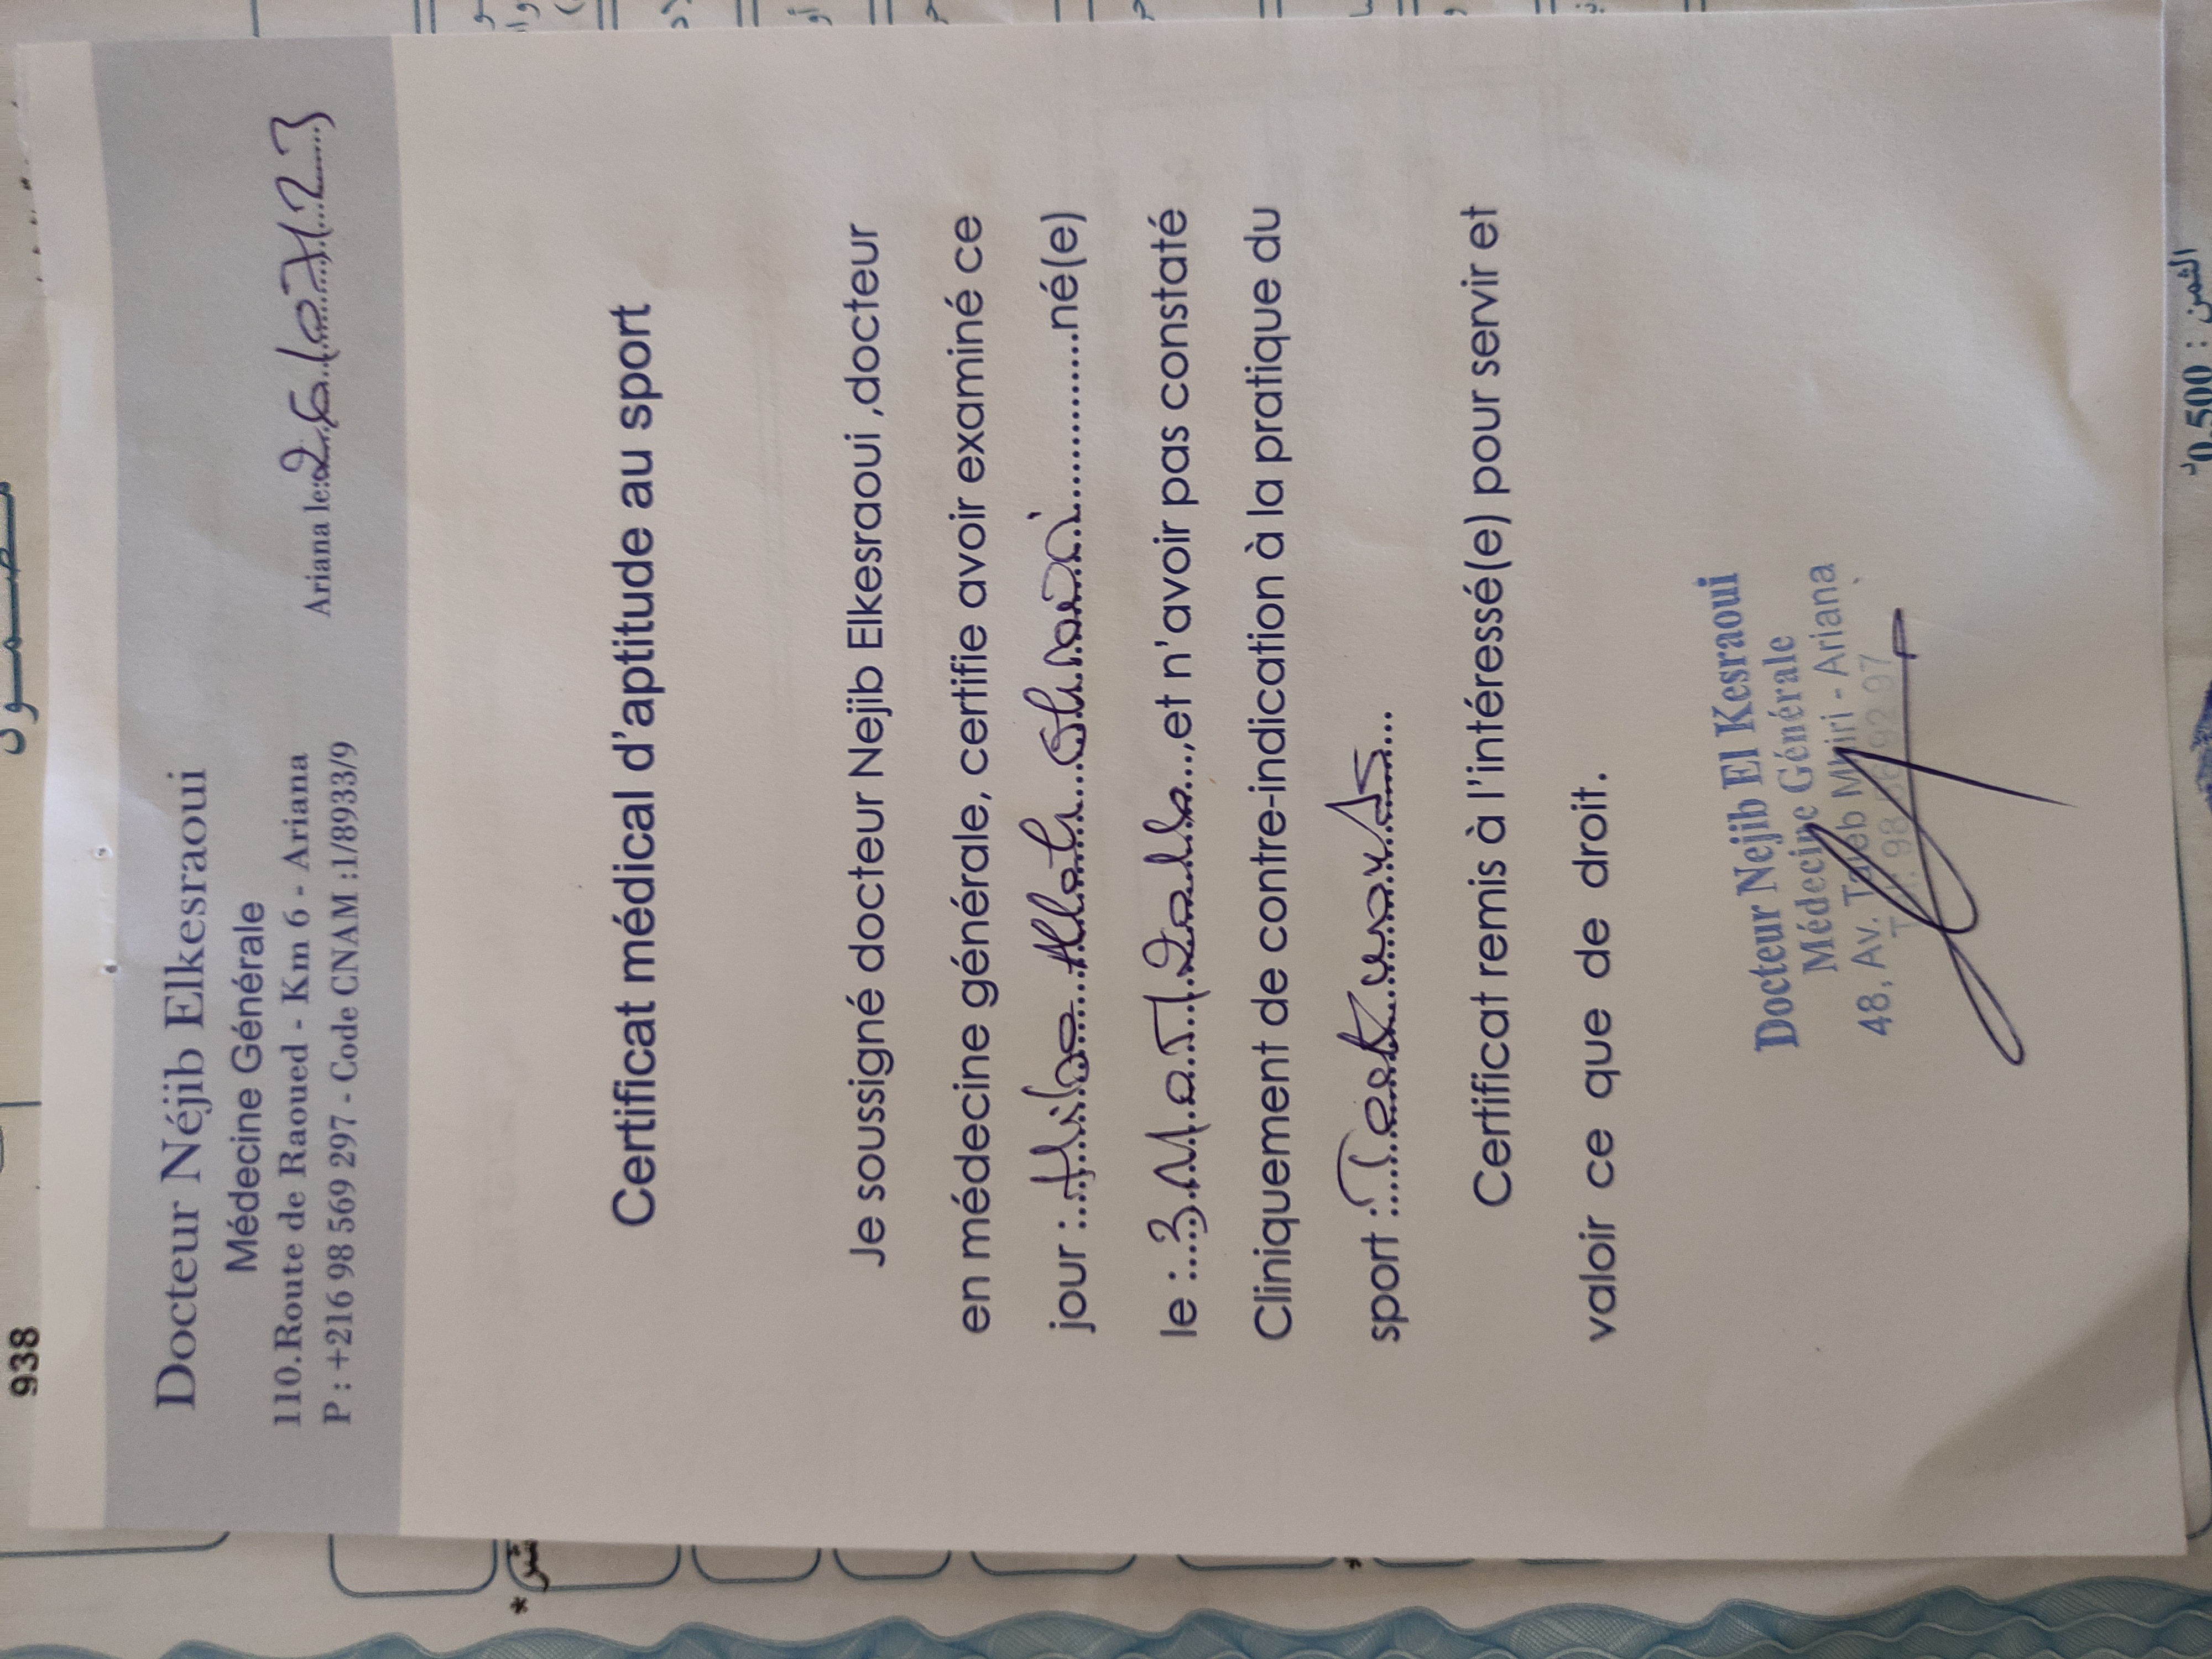 938
Docteur Néjib Elkesraoui
Médecine Générale
110.Route de Raoued - Km 6 - Ariana
P : +216 98 569 297 - Code CNAM :1/8933/9
Ariana le: 26/07/23
Certificat médical d'aptitude au sport
Je soussigné docteur Nejib Elkesraoui ,docteur
en médecine générale, certifie avoir examiné ce
jour : né(e)
le : et n'avoir pas constaté
Cliniquement de contre-indication à la pratique du
sport :
Certificat remis à l'intéressé(e) pour servir et
valoir ce que de droit.
Docteur Nejib El Kesraoui
Médecine Générale
48, Av. Taieb Mhiri - Ariana
الثمن : 0,500